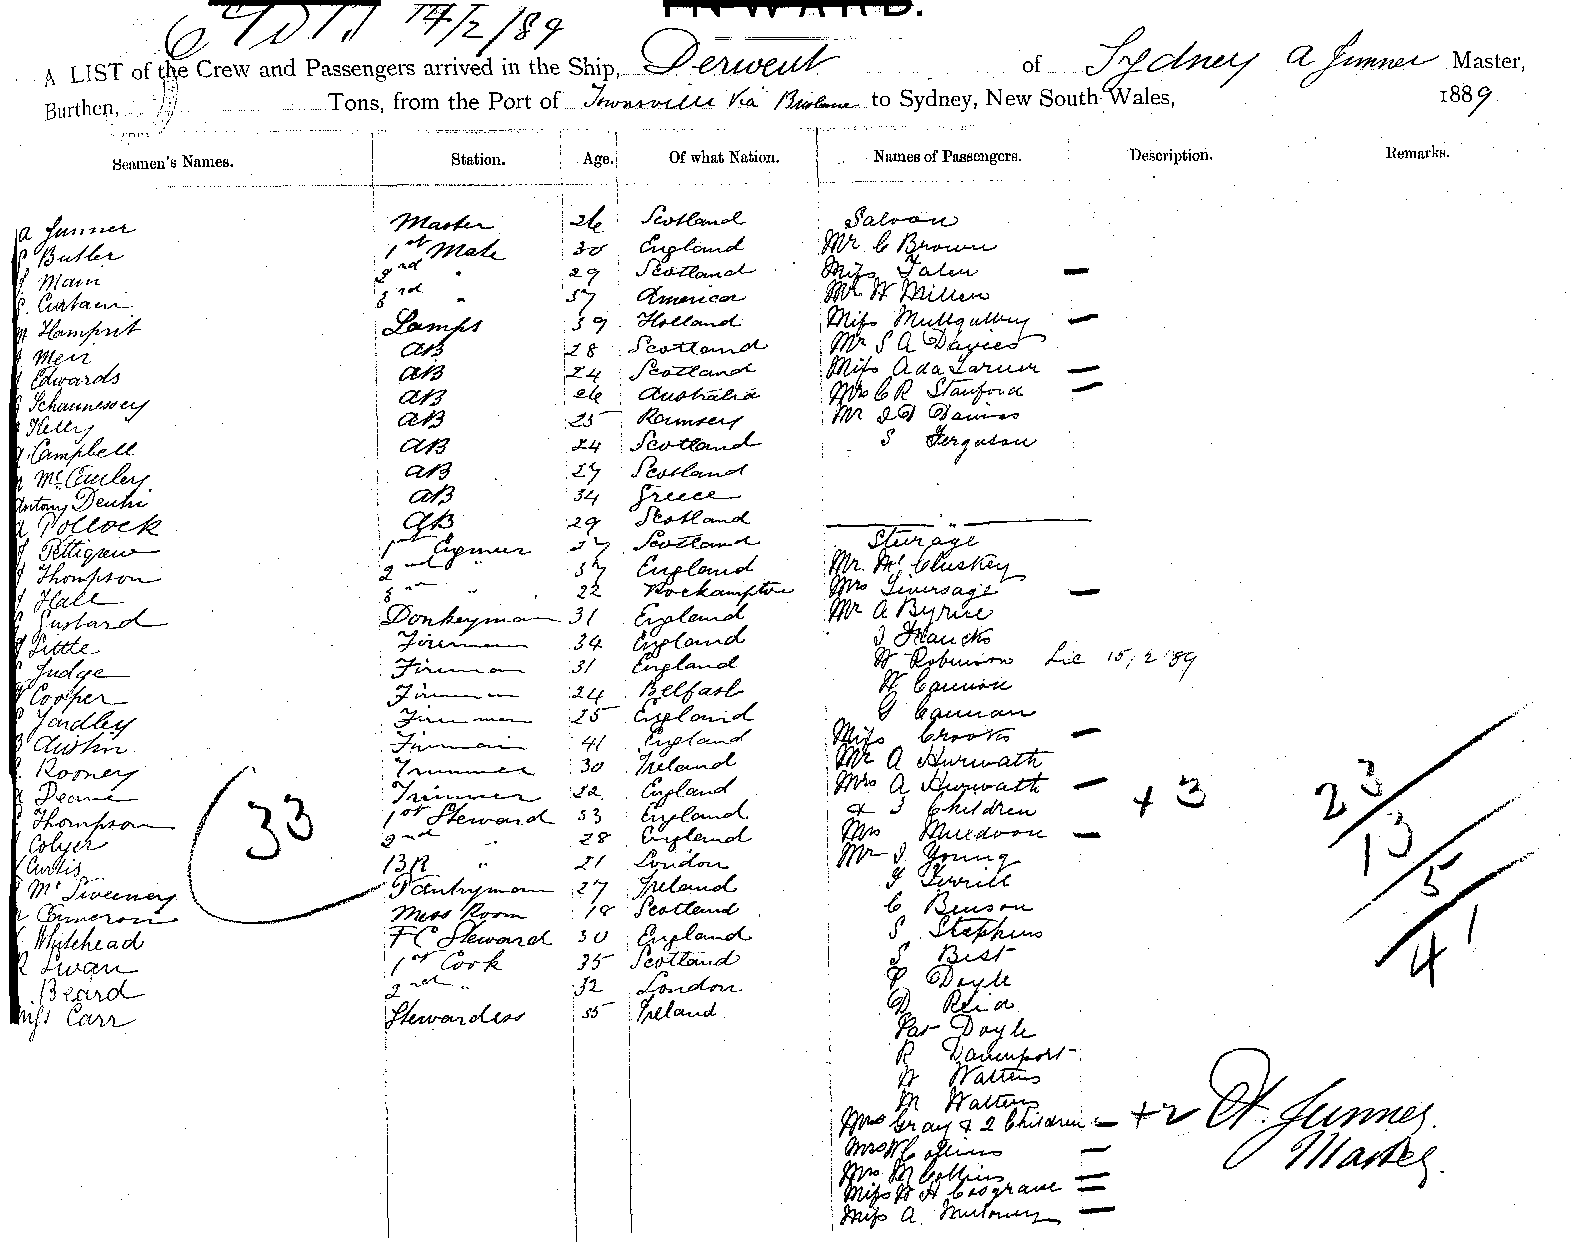 INWARD.
14/2/89
A LIST of the Crew and Passengers arrived in the Ship, Derwent of Sydney A Junner Master,
Burthen, Tons, from the Port of Townsville Via Brisbane to Sydney, New South Wales, 1889
Seamen's Names. Station. Age. Of what Nation. Names of Passengers. Description. Remarks.
A Junner Master 26 Scotland Saloon
Butler 1st Mate 30 England Mr C Brown
Main 2nd " 29 Scotland Miss —
Curtain 3rd " 37 America Mr W Miller
Lamps 39 Holland Miss —
Meir AB 28 Scotland Mr S A Davies
Edwards AB 24 Scotland Miss Ada Larner —
Schaunessey AB 26 Australia Mrs C R Stanford —
Kelly AB 25 Ramsey Mr
Campbell AB 24 Scotland S Ferguson
AB 27 Scotland
Antony AB 34 Greece
Pollock AB 29 Scotland
Pettigrew 1st Engineer 37 Scotland Sturage
Thompson 2nd " 37 England Mr McCluskey
Hall 3 " 22 Rockampton Mrs Liversage —
Gustard Donkeyman 31 England Mr A Byrne
Little Fireman 34 England
Judge Fireman 31 England W Robinson Lic 15/2/89
Cooper Fireman 24 Belfast W Cannon
Yardley Fireman 25 England G Cannan
Austin Fireman 41 England Miss Crooks —
Rooney Trimmer 30 Ireland Mr A Hurwath
Deane Trimmer 22 England Mrs A Hurwath —
Thompson 1st Steward 33 England & 3 Children + 3
Colyer 2nd " 28 England Mrs Muldoon —
Curtis BR " 21 London Mr J Young
McSweeney Pantryman 27 Ireland
Cameron Mess Room 18 Scotland C Benson
Whitehead FC Steward 30 England S Stephens
Swan 1st Cook 35 Scotland S Best
Beard 2nd " 32 London Doyle
Miss Carr Stewardess 35 Ireland D Reid
Pat Doyle
R Davenport
W Walters
M Walters
Mrs Gray & 2 Children — + 2
Mrs W Collins —
Mrs M Collins —
Miss W H Cosgrave —
Miss A —
33
23
13
5
1
4
A. Junner.
Master.